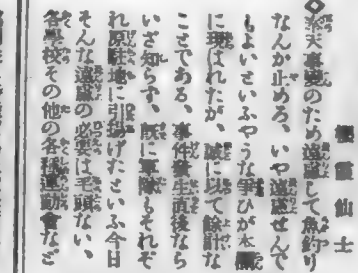 奉天事變のため遠慮して魚釣り
なんか止めろ、いや遠慮せんで
よいといふやうな爭ひが本
に現はれたが、誠に以て餘計な
ことである、事件發生直後なら
いざ知らず、既に軍隊もそれぞ
れ原駐地に引揚げたといふ今日
そんな遠慮の必要は毛頭ない、
各學校その他の各種運動會など